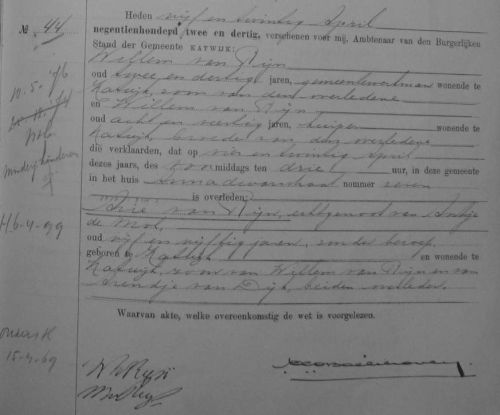 No. 44
Heden vijf en twintig April
negentienhonderd twee en dertig, verschenen voor mij, Ambtenaar van den Burgerlijken
Stand der Gemeente KATWIJK:
Willem van Rijn
oud twee en dertig jaren, gemeentewerkman wonende te
Katwijk, zoon van den overledene
en Willem van Rijn
oud acht en veertig jaren, wonende te
Katwijk, broeder van den overledene
die verklaarden, dat op vier en twintig April
dezes jaars, des voormiddags ten drie uur, in deze gemeente
in het huis nummer zeven
is overleden:
Arie van Rijn, echtgenoot van Antje
de Mol,
oud vijf en vijftig jaren, zonder beroep,
geboren te Katwijk en wonende te
Katwijk, zoon van Willem van Rijn en van
Arendje van Dijk, beiden overleden.
Waarvan akte, welke overeenkomstig de wet is voorgelezen.
10-5-76
Minderj. kinderen
W v Rijn